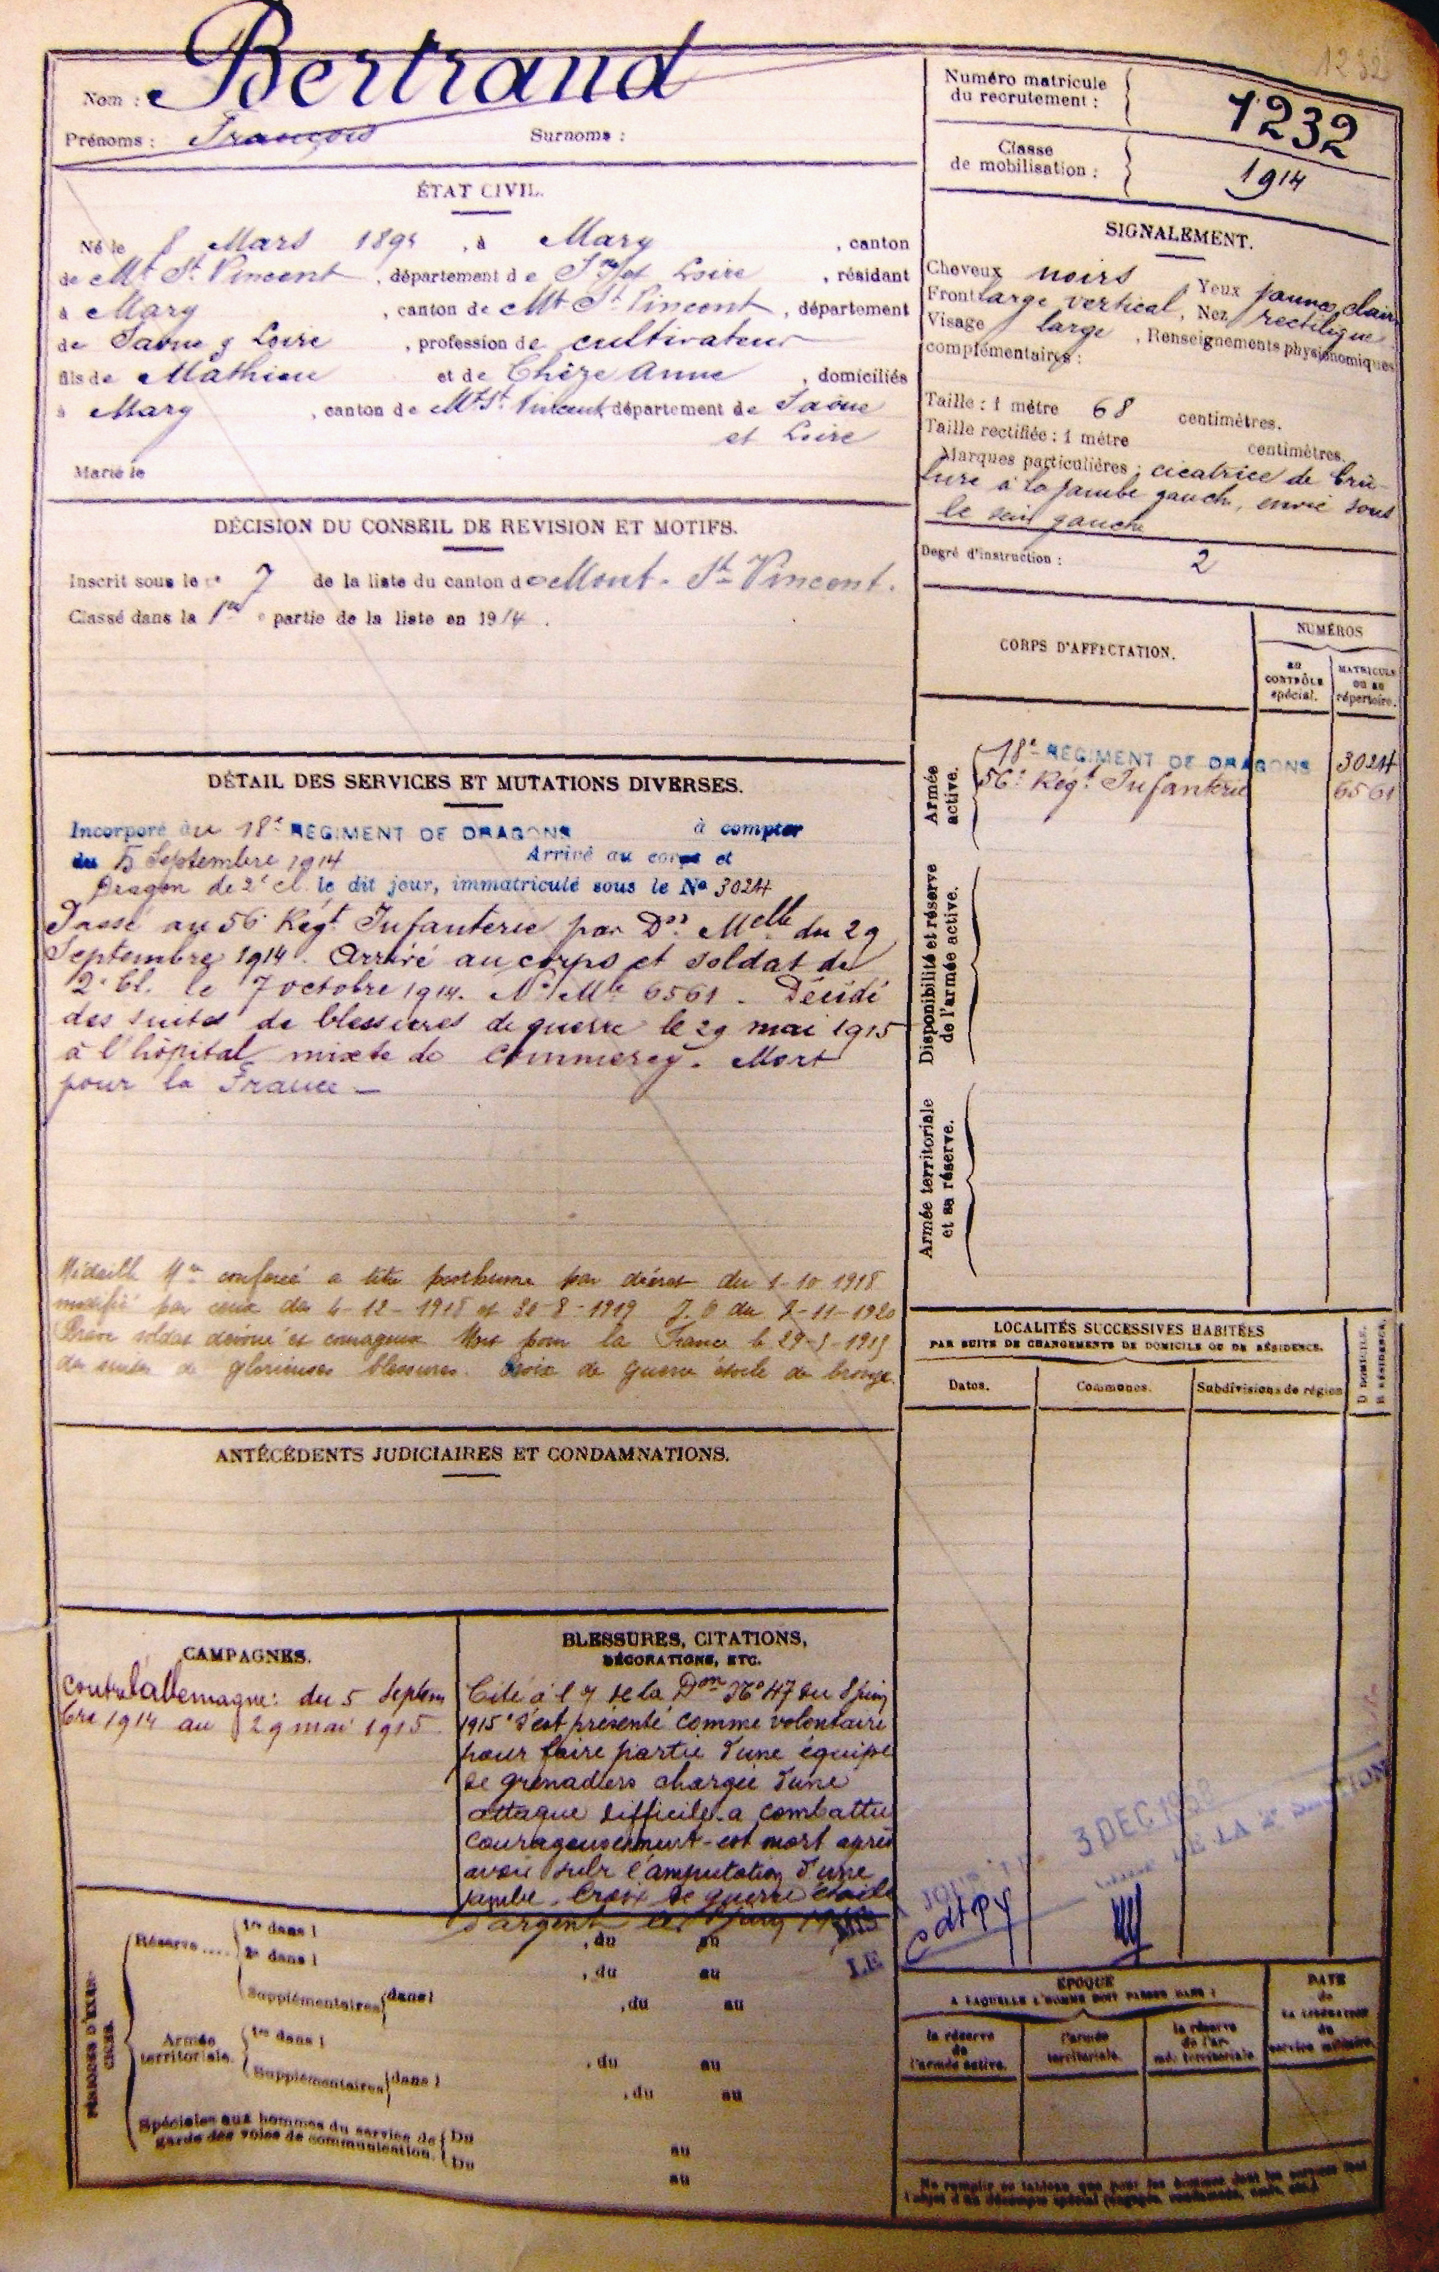 1232
Nom : Bertrand
Prénoms : François Surnoms :
Numéro matricule
du recrutement : 1232
Classe
de mobilisation : 1914
ÉTAT CIVIL.
Né le 8 Mars 1894, à Mary, canton
de Mt St Vincent, département de Sne et Loire, résidant
à Mary, canton de Mt St Vincent, département
de Saône & Loire, profession de cultivateur
fils de Mathieu et de Chèze Anne, domiciliés
à Mary, canton de Mt St Vincent, département de Saône
et Loire
Marié le
SIGNALEMENT.
Cheveux noirs, Yeux jaunes clairs
Front large vertical, Nez rectiligne
Visage large, Renseignements physionomiques
complémentaires :
Taille : 1 mètre 68 centimètres.
Taille rectifiée : 1 mètre centimètres.
Marques particulières : cicatrice de brû-
lure à la jambe gauche, envie sous
le sein gauche
Degré d'instruction : 2
DÉCISION DU CONSEIL DE REVISION ET MOTIFS.
Inscrit sous le n° 7 de la liste du canton de Mont-St-Vincent.
Classé dans la 1re partie de la liste en 1914.
CORPS D'AFFECTATION.
NUMÉROS
au
CONTRÔLE
spécial.
MATRICULE
ou au
répertoire.
Armée
active.
18e REGIMENT DE DRAGONS 3024
56e Régt Infanterie 6561
Disponibilité et réserve
de l'armée active.
Armée territoriale
et sa réserve.
DÉTAIL DES SERVICES ET MUTATIONS DIVERSES.
Incorporé au 18e REGIMENT DE DRAGONS à compter
du 5 Septembre 1914 Arrivé au corps et
Dragon de 2e cl. le dit jour, immatriculé sous le No 3024
Passé au 56e Régt Infanterie par Don Melle du 29
Septembre 1914. Arrivé au corps et soldat de
2e Cl. le 7 octobre 1914. No Mle 6561. Décédé
des suites de blessures de guerre le 29 mai 1915
à l'hôpital mixte de Commercy. Mort
pour la France —
Médaille Mre conférée a titre posthume par décret du 1-10 1918
modifié par ceux des 4-12-1918 et 20-8-1919 J.O du 2-11-1920
Brave soldat dévoué et courageux Mort pour la France le 29-5-1915
des suites de glorieuses blessures. Croix de guerre étoile de bronze.
LOCALITÉS SUCCESSIVES HABITÉES
PAR SUITE DE CHANGEMENTS DE DOMICILE OU DE RÉSIDENCE.
Dates.
Communes.
Subdivisions de région
D DOMICILE.
R RÉSIDENCE.
ANTÉCÉDENTS JUDICIAIRES ET CONDAMNATIONS.
CAMPAGNES.
Contre l'allemagne : du 5 Septem
bre 1914 au 29 mai 1915
BLESSURES, CITATIONS,
DÉCORATIONS, ETC.
Cité à l'o de la Don No 47 du 8 juin
1915 "S'est présenté comme volontaire
pour faire partie d'une équipe
de grenadiers chargée d'une
attaque difficile a combattu
courageusement - est mort après
avoir subi l'amputation d'une
jambe. Croix de guerre étoile
d'argent
3 DEC
DE LA 2e
LE
PÉRIODES D'EXER-
CICES.
Réserve .... 1re dans l , du au
2e dans l , du au
Supplémentaires dans l , du au
Armée
territoriale. 1re dans l , du au
Supplémentaires dans l , du au
Spéciales aux hommes du service de
garde des voies de communication. Du au
Du au
ÉPOQUE
A LAQUELLE L'HOMME DOIT PASSER DANS :
la réserve
de
l'armée active.
l'armée
territoriale.
la réserve
de l'ar-
mée territoriale
DATE
de
LA LIBÉRATION
du
service militaire.
Ne remplir ce tableau que pour les hommes dont les services font
l'objet d'un décompte spécial (engagés, condamnés, omis, etc.)